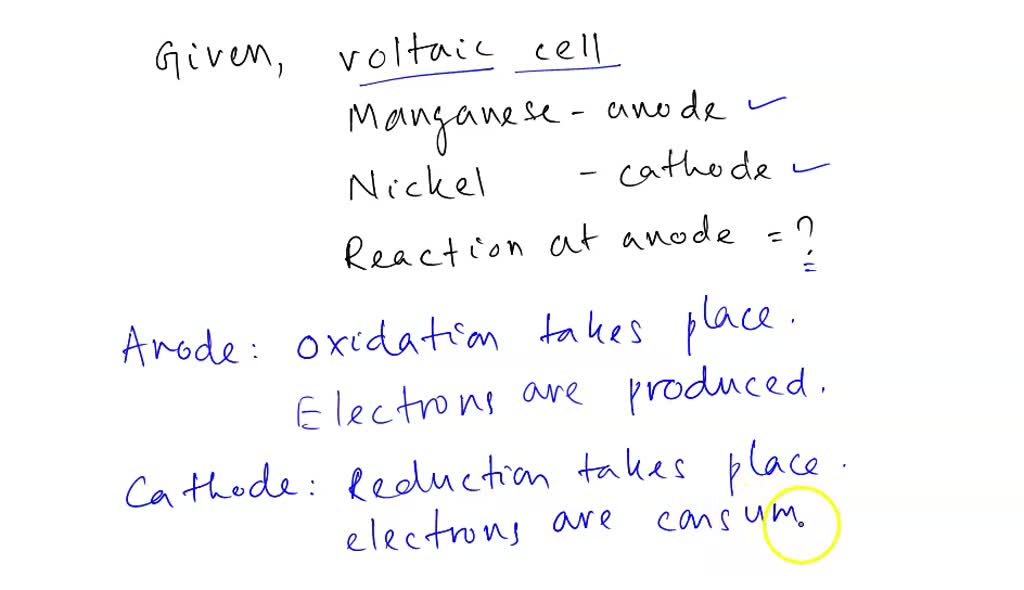 Given, voltaic cell
Manganese - anode ✓
Nickel - cathode ✓
Reaction at anode = ?
Anode: Oxidation takes place.
Electrons are produced.
Cathode: Reduction takes place.
electrons are consum